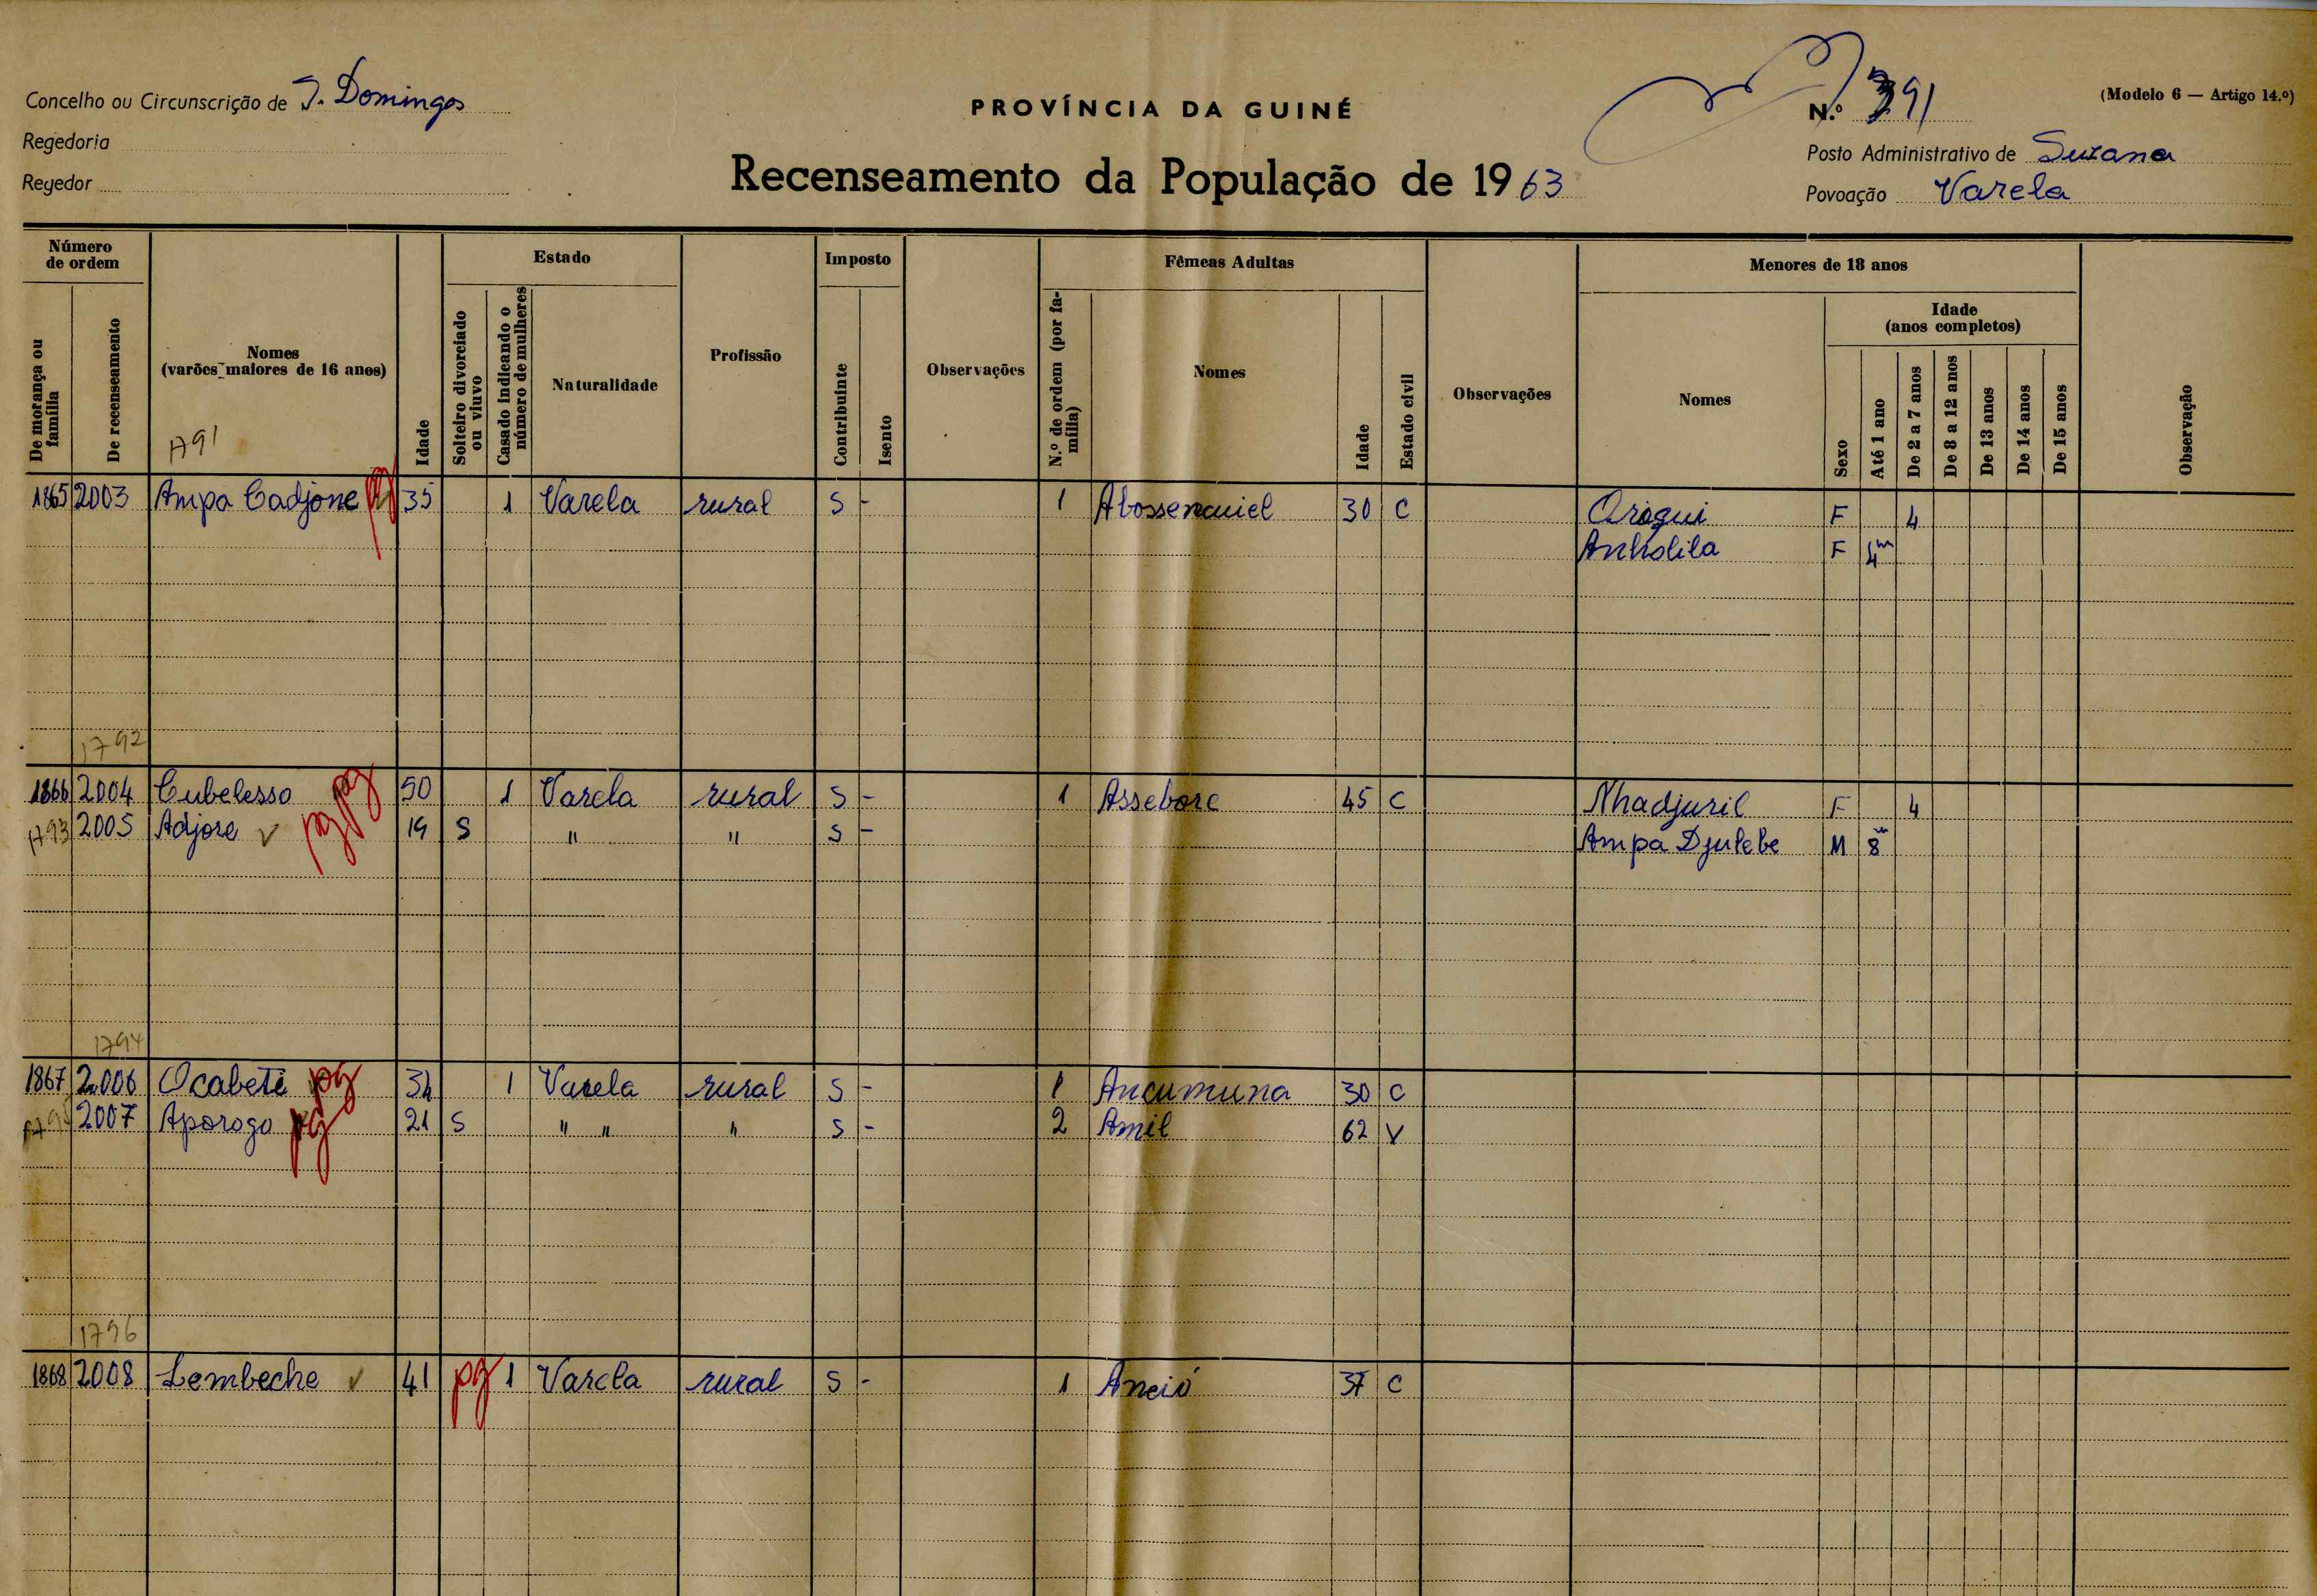 Concelho ou Circunscrição de S. Domingos
Regedoria
Regedor
PROVÍNCIA DA GUINÉ
Recenseamento da População de 1963
N.º 391
(Modelo 6 — Artigo 14.º)
Posto Administrativo de Suzana
Povoação Varela
Número de ordem
De morança ou família
De recenseamento
Nomes
(varões maiores de 16 anos)
Idade
Estado
Solteiro divorciado ou viuvo
Casado indicando o número de mulheres
Naturalidade
Profissão
Imposto
Contribuinte
Isento
Observações
Fêmeas Adultas
N.º de ordem (por família)
Nomes
Idade
Estado civil
Observações
Menores de 18 anos
Nomes
Sexo
Idade
(anos completos)
Até 1 ano
De 2 a 7 anos
De 8 a 12 anos
De 13 anos
De 14 anos
De 15 anos
Observação
1791
1865 2003 Ampa Cadjone pg 35 1 Varela rural S - 1 Abossenauiel 30 C Oragui F 4
Anholila F 4m
1792
1866 2004 Cubelesso pg 50 1 Varela rural S - 1 Assebore 45 C Nhadjuril F 4
1793 2005 Adjore pg 19 S " " S - Ampa Djulebe M 8m
1794
1867 2006 Ocabeti pg 34 1 Varela rural S - 1 Ancumuna 30 C
2007 Aporogo pg 21 S " " " S - 2 Amil 62 V
1796
1868 2008 Lembeche 41 pg 1 Varela rural S - 1 Aneió 37 C